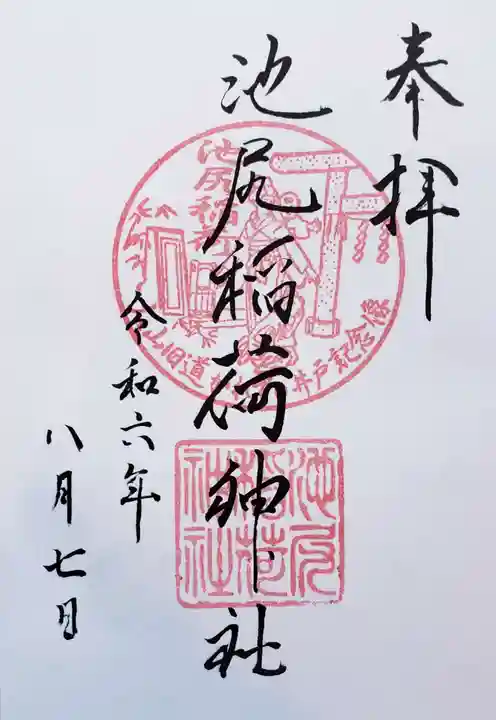 奉拝
池尻稲荷神社
令和六年
八月七日
池尻稲荷
旧道
井戸記念像
池尻
稲荷
神社